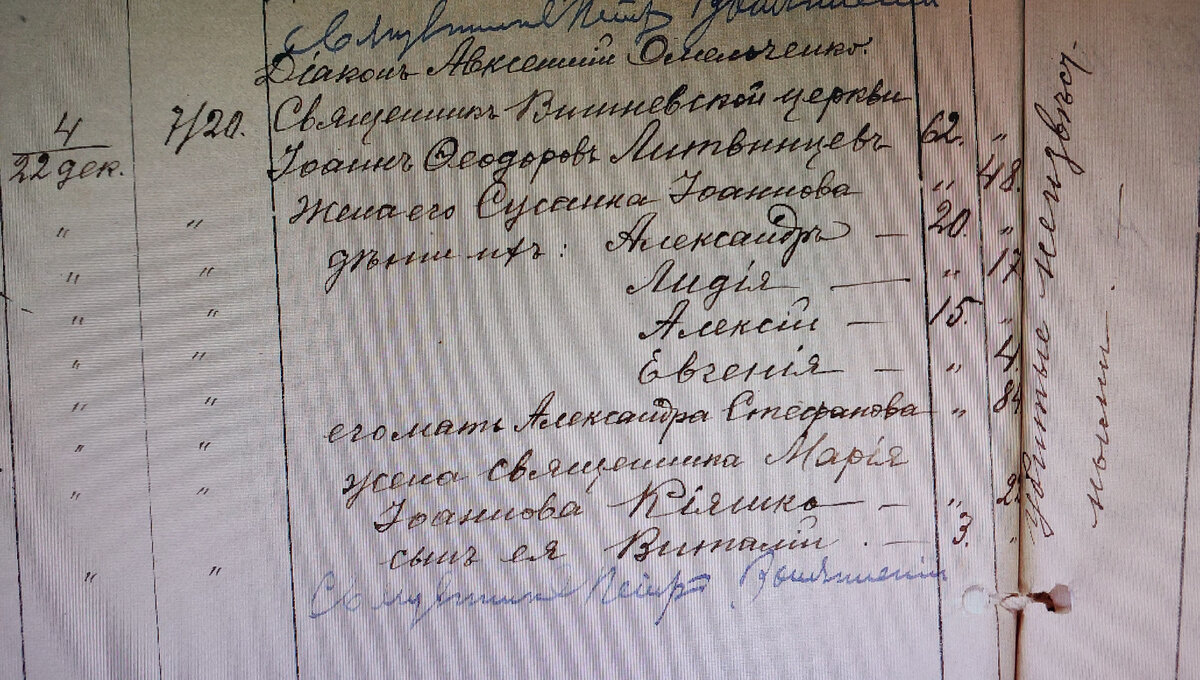 Діаконъ Авксентій Омельченко.
4 7/20. Священникъ Вишневской церкви
22 дек. Іоаннъ Ѳеодоровъ Литвинцевъ 62. „
„ „ Жена его Сусанна Іоаннова „ 48.
„ „ дѣти ихъ: Александръ — 20. „
„ „ Лидія — „ 17
„ „ Алексій — 15. „
„ „ Евгенія — „ 4.
„ „ его мать Александра Стефанова „ 84
„ „ жена священника Марія
„ „ Іоаннова Кіяшко — „
„ „ сынъ ея Виталій. — 3. „
Священникъ Петръ
убитые неизвѣст-
ными.